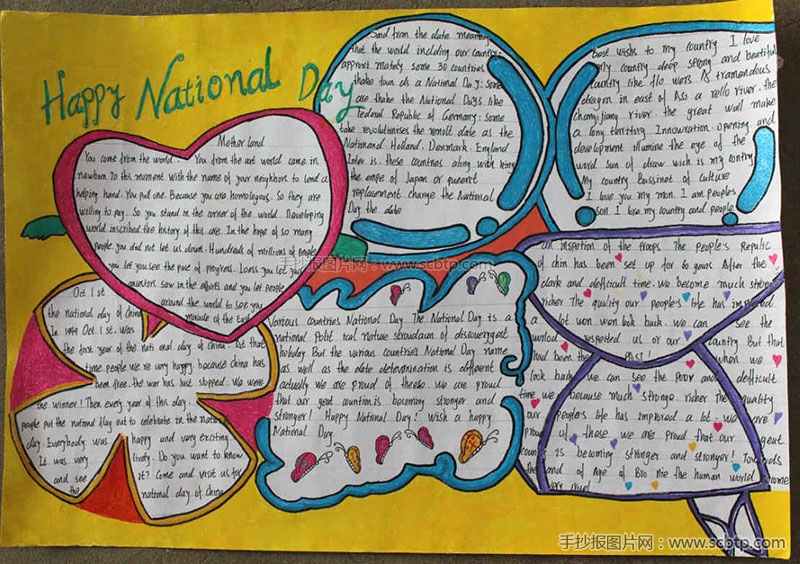 Happy National Day
Mother land
You come from the world. You from the art world came in
newborn. To this moment with the name of your neighbors to lend a
helping hand. You pull one. Because you are homologous. So they are
willing to pay. So you stand in the corner of the world. Developing
world inscribed the history of this are. In the hope of so many
people you did not let us down. Hundreds of millions of people
you let you see the pace of progress. you let you
in the efforts and you let people
around the world to see you
miracle of the East
said from the date meaning
that the world inclding our country
approxi mately some 30 countries
shake town ds a National Day: some
are thake the National Days like
Federal Republic of Germany: some
take revolutionizes the date as the
Nationand. Holland. Denmark. England
Inter is. these countries along with king
the enpe of Japan or queent
replacement change the National
Day the date
Best wishs to my country I love
my country deep strong and beautiful
country like flo wers Is tramendous
dragon in east of Asa a rello river. the
chang jiang river. the great wall make
a long territiry Innouration. opening and
development illumine the eye of the
world sun of draw wich is my contry
My country Bassinet of culture
I love you my man. I am peoples
son I lose my country and people
Oct 1 st
the national day of china
In 1949 Oct 1st. was
the first year of the nati onal day of china. At that
time people we re very happy because China has
been free. the war has just stopped. We were
the winner! Then every year of this day
people put the national flay out to celebrate in the nation
day. Everybody was happy and very exciting
It was very lively. Do you want to know
and see it? Come and visit us for
the national day of China
Various countries National Day. The National Day is a
national Polit ical nature
holiday But the various countries National Day name
as well as the date determination is different
actually we are proud of these. we are proud
that our great countion is becoming stronger and
stronger! Happy National Day! Wish a happy
National Day
an dispetion of the troops The people's Repulic
of chin has been set up for 60 years After the
dark and defficult time. we become much stronger
richer The quality our people's life has improed
a lot won won look back we can see the
wrlod respected us or our country But that
had been the past! when we
look back we can see the Poor and defficult
time we because much stronge richer the quality
our people's life has improed a lot we are
proud of those we are proud that our great
countr is becoming stronger and stronger! Towards
the end of Age of Bro me the human world
手抄报图片网：www.scbtp.com
手抄报图片网：www.scbtp.com